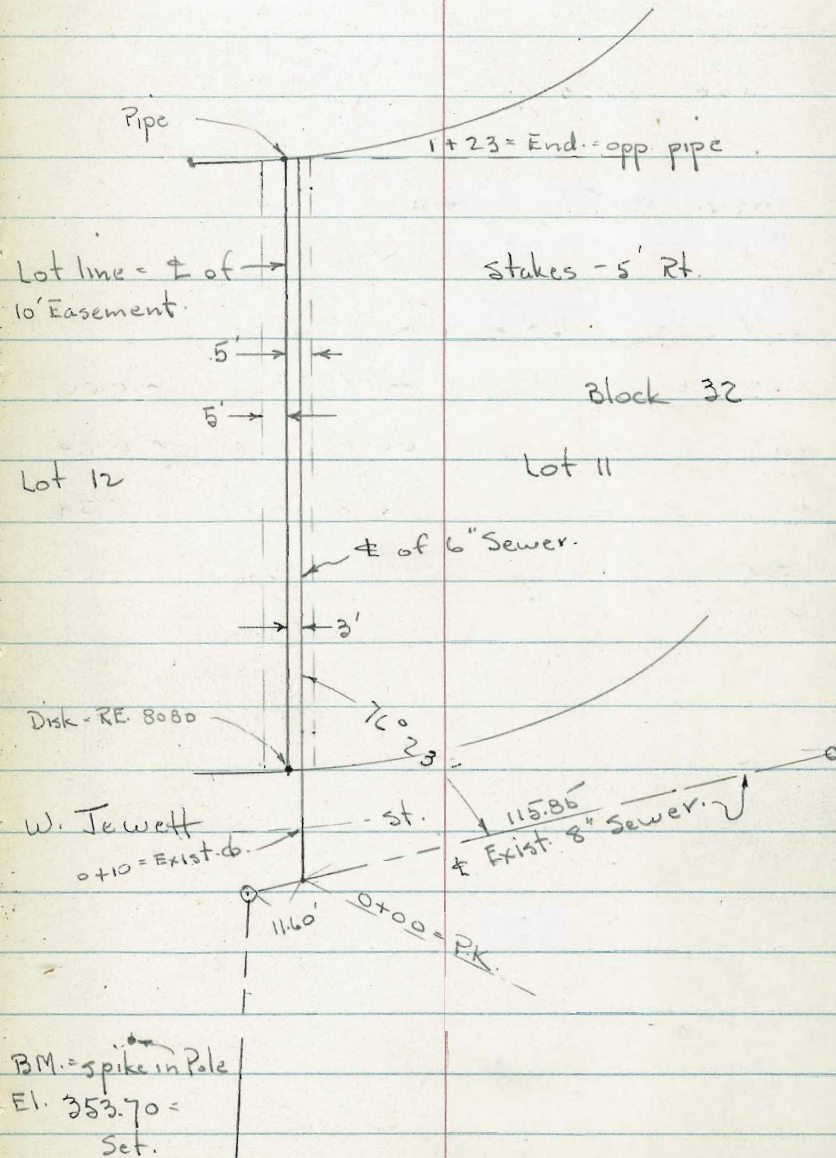 Pipe
1+23 = End. = opp. pipe
Lot line = ℄ of
10' Easement.
Stakes - 5' Rt.
5'
Block 32
5'
Lot 11
Lot 12
℄ of 6" Sewer.
3'
Disk - RE. 8080
23
W. Jewett st.
115.86
℄ Exist. 8" Sewer.
0+10 = Exist. cb.
11.60'
0+00 = P.K.
BM. = spike in Pole
El. 353.70 =
Set.